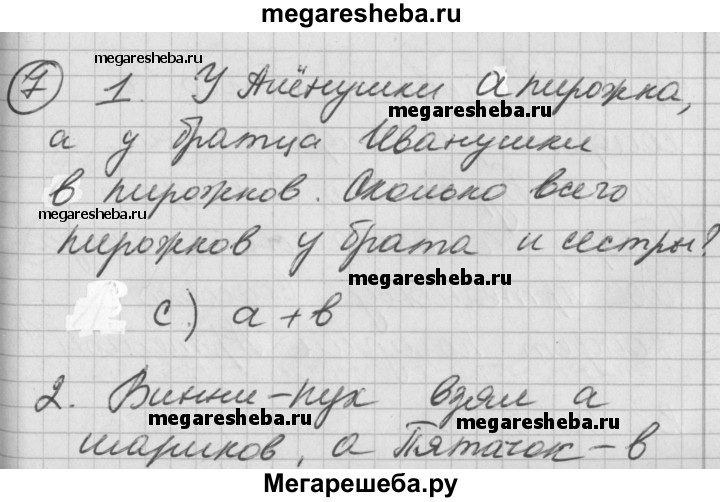 megaresheba.ru
megaresheba.ru
7 1. У Алёнушки а пирожка,
megaresheba.ru
а у братца Иванушки
в пирожков. Сколько всего
megaresheba.ru
пирожков у брата и сестры?
megaresheba.ru
с) а+в
2. Винни-пух взял а
megaresheba.ru
шариков, а Пятачок - в
Мегарешеба.ру